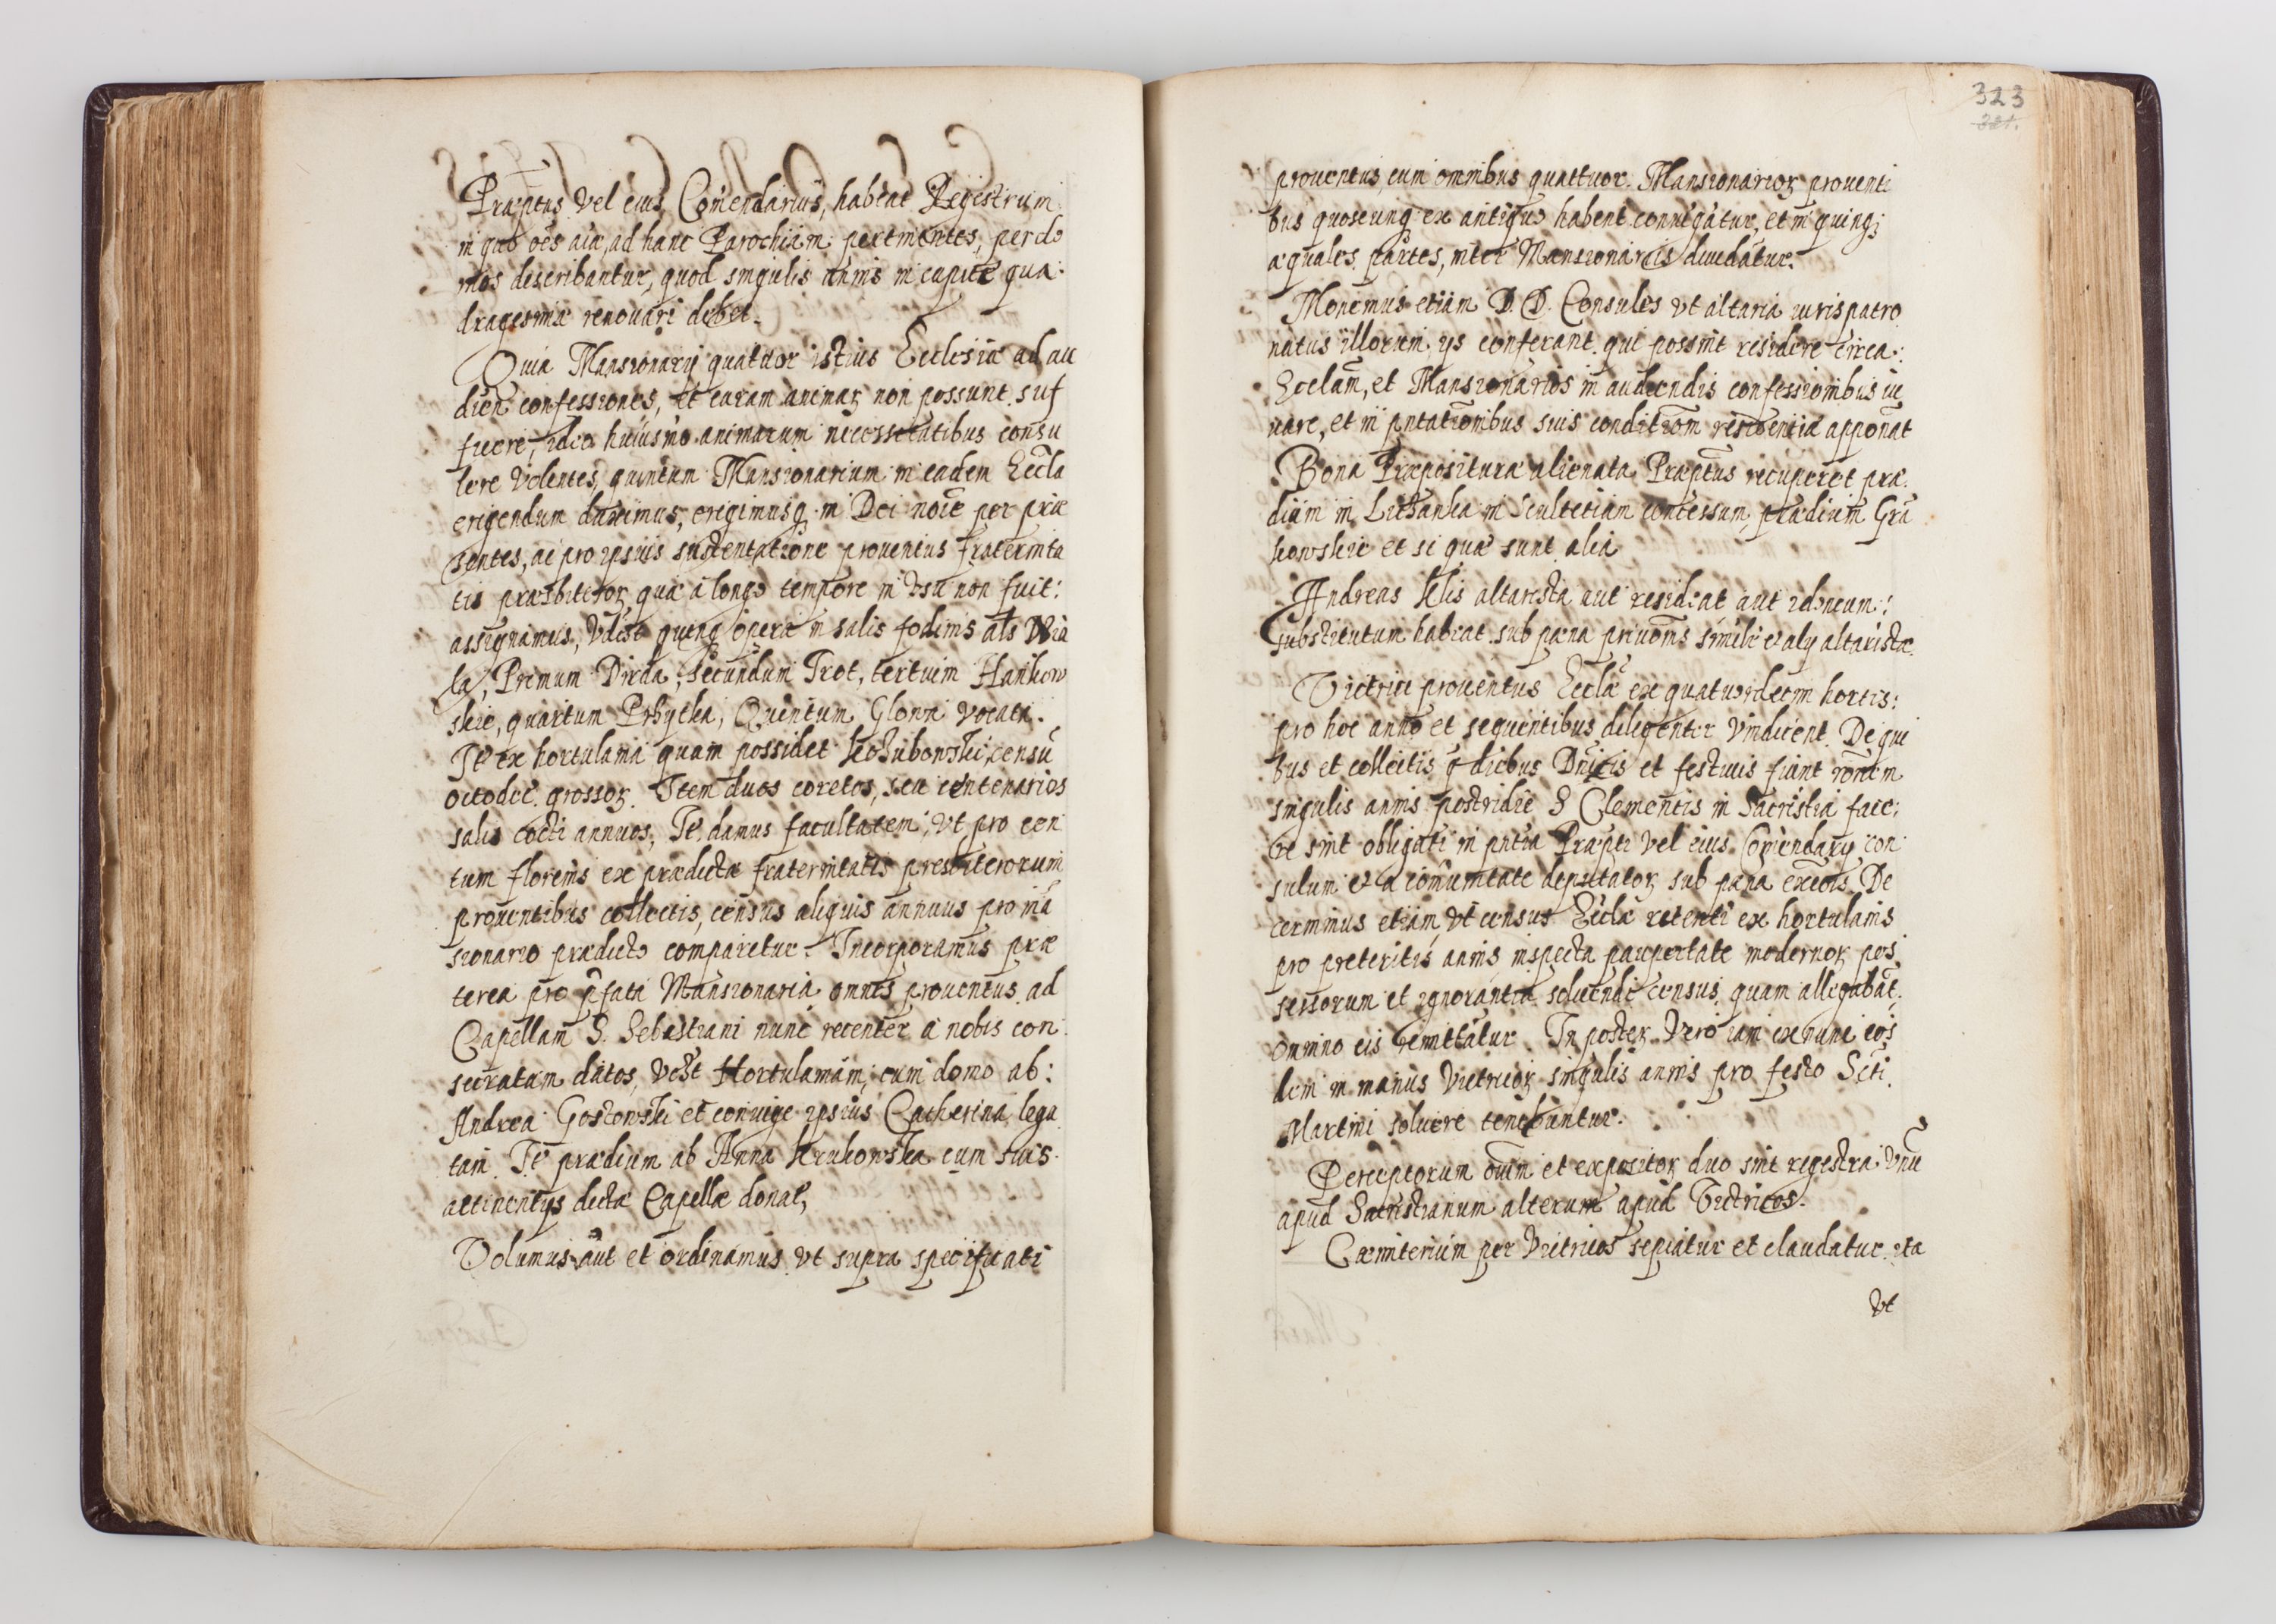 Præptus vel eius Comendarius, habeat Regestrum
in quo oēs aīæ, ad hanc Parochiam pertinentes, per do
mos describantur, quod singulis annis in capite qua:
dragesimæ renouari debet.
Quia Mansionarij quatuor istius Ecclesiæ ad au
dien confessiones, et curam animaꝝ non possunt suf
ficere, ideo huiusmo animarum necessitatibus consu
lere volentes, quintum Mansionarium in eadem Eccla
erigendum duximus, erigimusq in Dei noīe per præ
sentes, ac pro ipsius sustentatione prouentus fraternita
tis præsbiteroꝝ quæ a longo tempore in vsu non fuit:
assignamus, Vdlst quinq operæ in salis fodinis als Wia
la, Primum Pirda, secundum Trot, tertium Hankow
skie, quartum Przytka, Quintum Glowa vocata.
Itē ex hortulania quam possidet Kozubowski censū
octodec. grossoꝝ. Item duos coretos, seu centenarios
salis cocti annuos, Itē damus facultatem, vt pro cen
tum florenis ex prædictæ fraternitatis presbiterorum
prouentibus collectis, census aliquis annuus pro mā
sionario prædicto comparetur. Incorporamus præ
terea pro pfata Mansionaria omnes prouentus ad
Capellam S. Sebastiani nunc recenter a nobis con
secratam datos, vdlst Hortulaniam, cum domo ab:
Andrea Gostowski et coniuge ipsius Catherina lega
tam. Itē prædium ab Anna Krukowska cum suis
attinentijs dictæ Capellæ donat,
Volumus aut et ordinamus vt supra specificati
323
321.
prouentus, cum omnibus quattuor Mansionarioꝝ prouenti
bus quoscunq ex antiquo habent coniungātur, et in quinq;
æquales partes, inter Mansionarios diuidātur.
Monemus etiam D. D. Consules vt altaria iuris patro
natus illorum ijs conferant qui possint residere circa
Ecclam, et Mansionarios in audiendis confessionibus iu
uare, et in pntationibus suis conditiom residentiæ apponāt
Bona Præposituræ alienata Præptus recuperet præ
dium in Lednica in Scultetiam concessum prædium Gra
kowskie et si qua sunt alia
Andreas Klis altarista aut resideat aut idoneum:
substitutum habeat sub pæna priuōnis simil et alij altaristæ.
Victrici prouentus Ecclæ ex quatuordecim hortis:
pro hoc anno et sequentibus diligenter vindicent. De qui
bus et collectis q diebus Dnicis et festiuis fiunt rōnem
singulis annis postridie S Clementis in Sacristia face:
re sint obligati in pntia Præpti vel eius Comendarij con
sulum et a comunitate deputatoꝝ sub pæna excōis. De
cernimus etiam, vt census Ecclæ retenti ex hortulanis
pro preteritis annis inspecta paupertate modernoꝝ pos
sessorum et ignorantia soluendi census quam allegabāt
omnino eis remittatur. In posteꝝ vero iam ex nunc eos
dem in manus vitricoꝝ singulis annis pro festo Scti
Martini soluere tenebuntur.
Perceptorum ōium et expositoꝝ duo sint regestra vnū
apud Sacristianum alterum apud Victricos.
Cæmiterium per Vitricos sepiatur et claudatur ita
vt